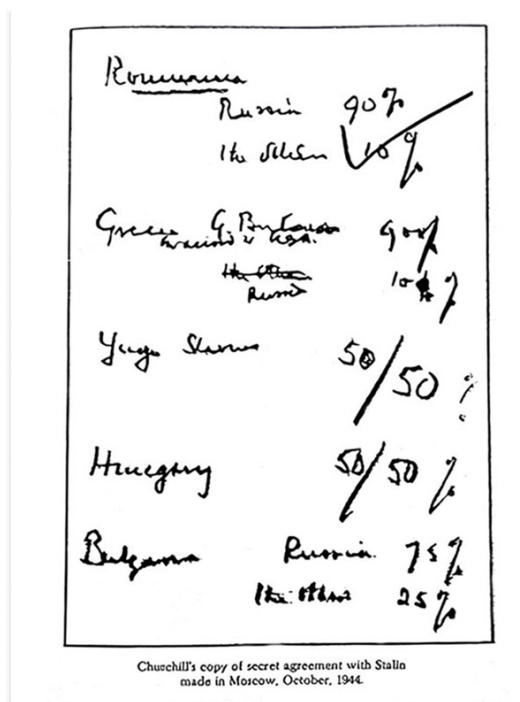 Roumania
Russia 90%
The others 10%
Greece G. Britain 90%
in accord w USA.
The others
Russia 10%
Yugo Slavia 50/50 %
Hungary 50/50 %
Bulgaria Russia. 75%
The others 25%
Churchill's copy of secret agreement with Stalin
made in Moscow, October, 1944.